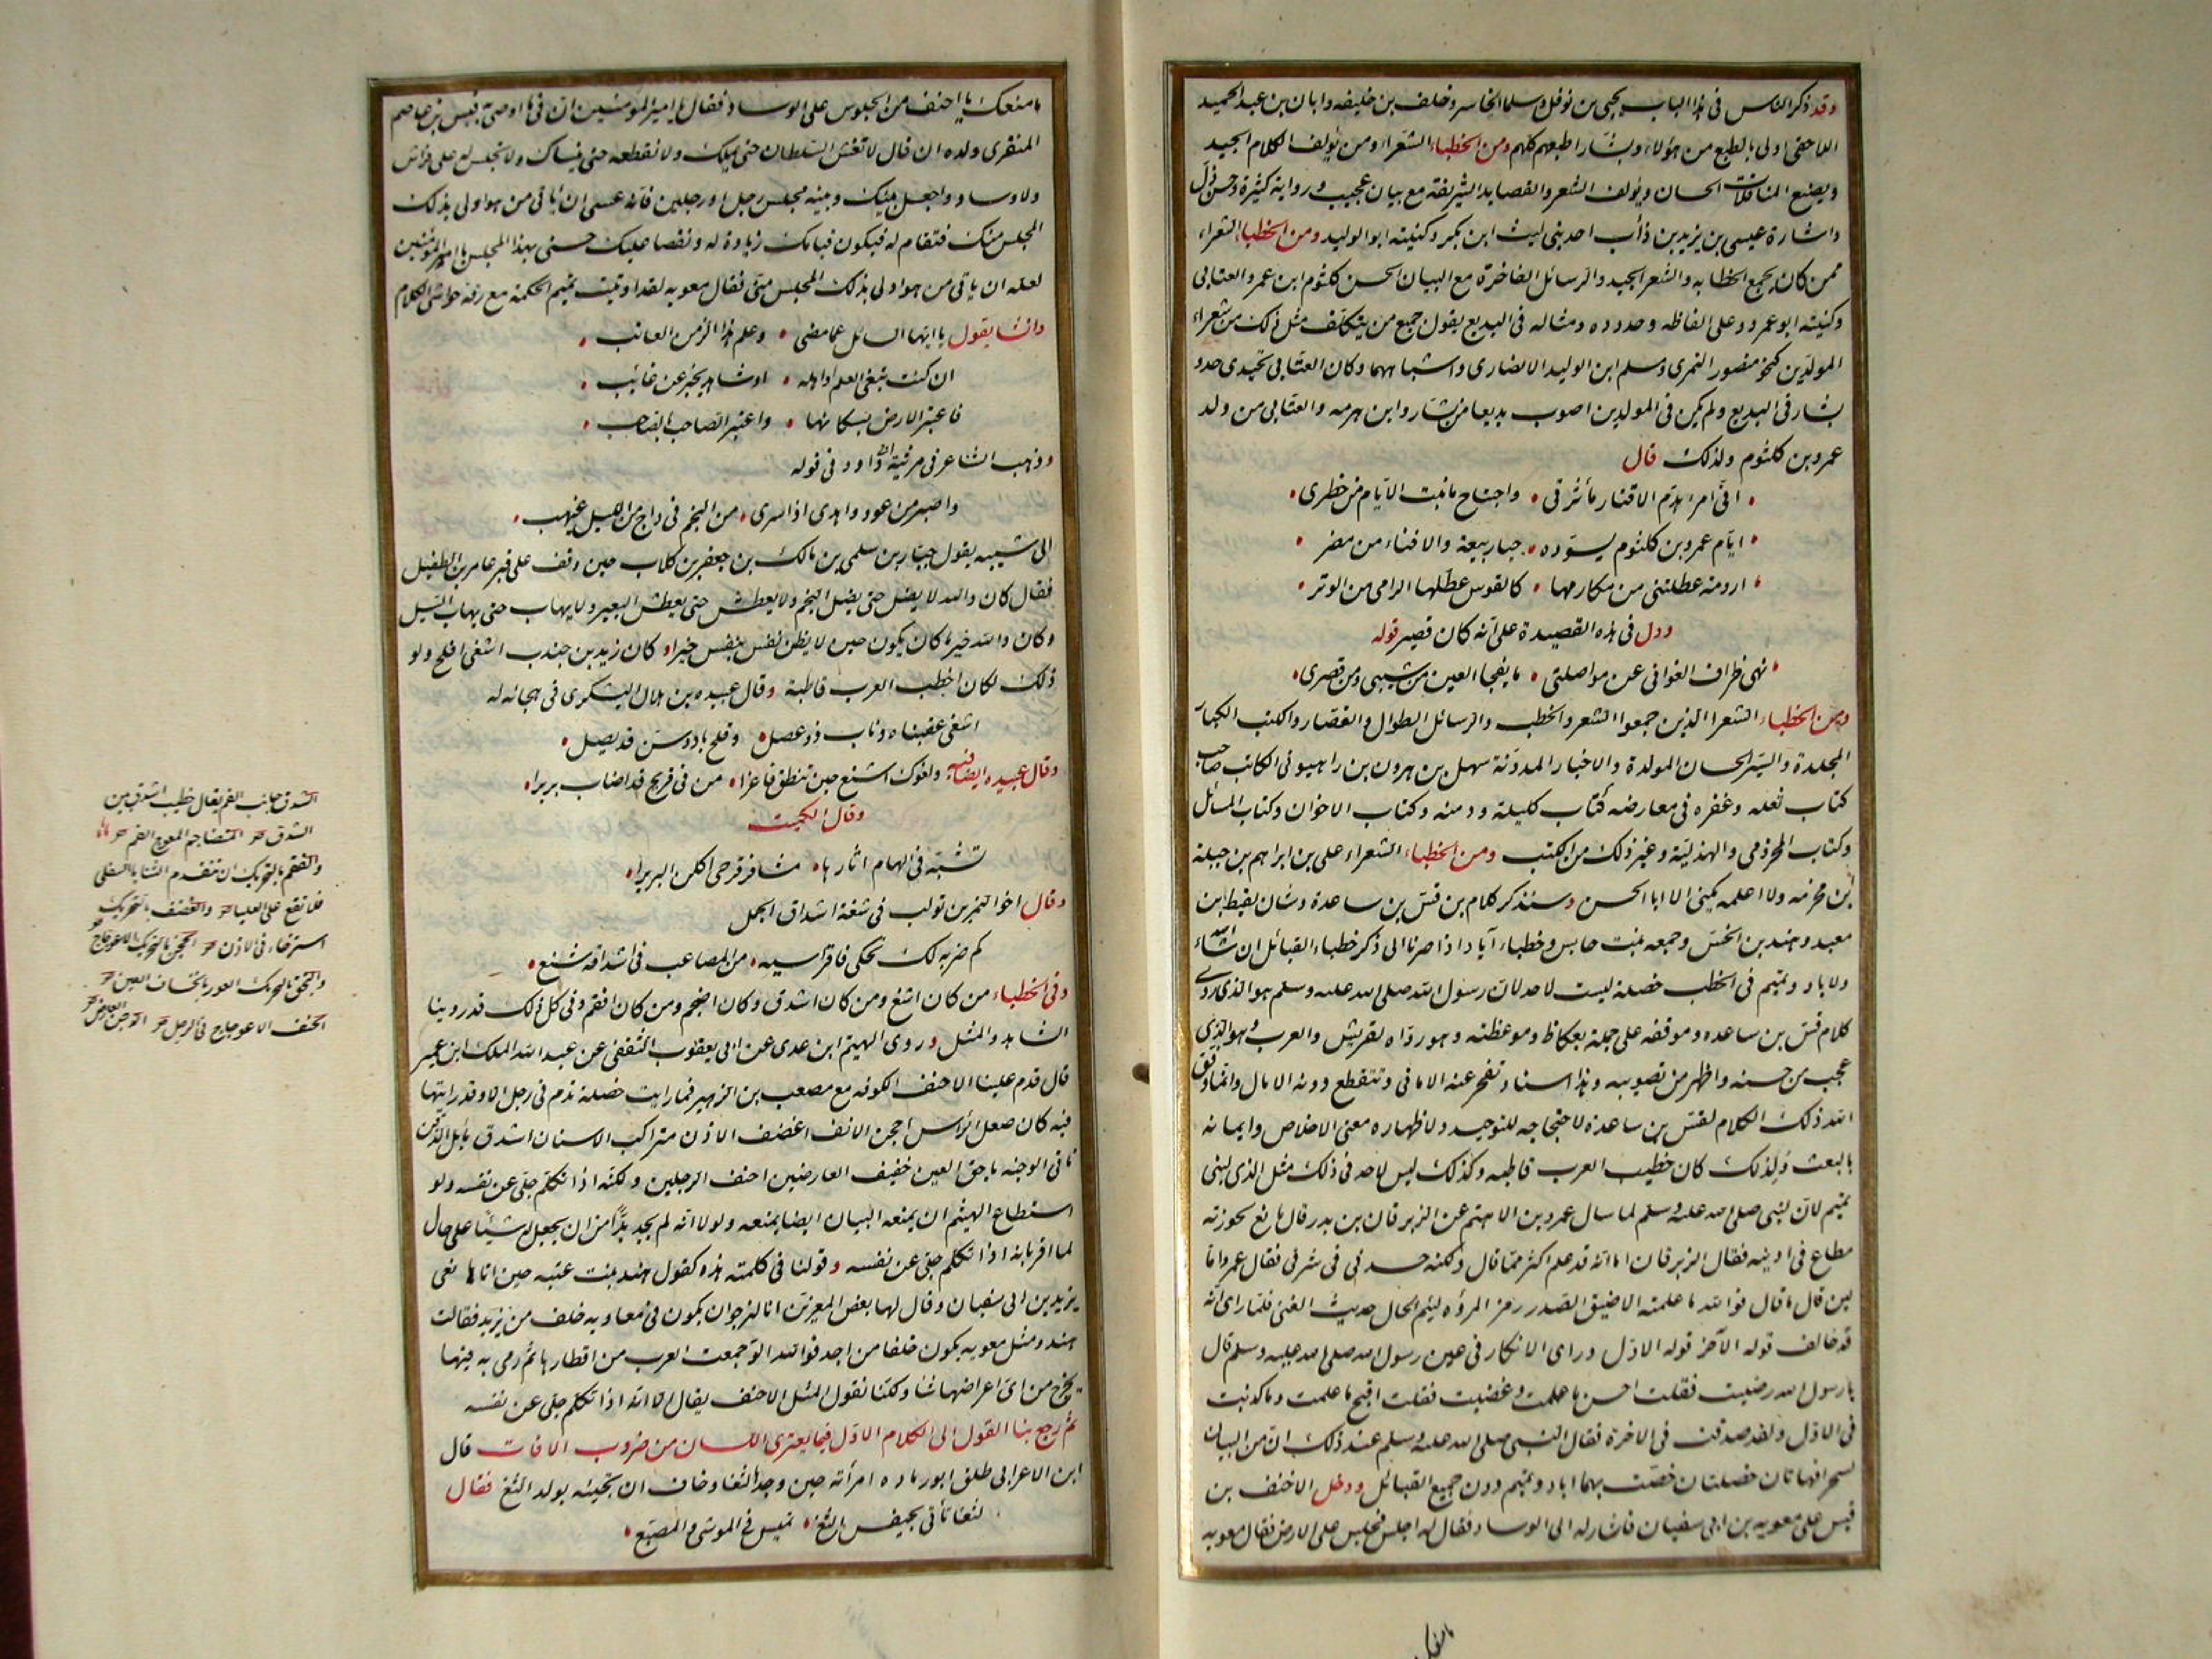 وقد ذكر الناس فى هذا الباب يحيى بن نوفل وسلما الخاسر وخلف بن خليفه وابان بن عبد الحميد
اللاحقى اولى بالطبع من هؤلاء وبشار اطبعهم كلهم ومن الخطباء الشعراء ومن يؤلف الكلام الجيد
ويصنع المناقلات الحسان ويؤلف الشعر والقصايد الشريفة مع بيان عجيب ورواية كثيرة وحسن دل
واشارة عيسى بن يزيد بن دأب احد بنى ليث ابن بكر وكنيته ابو الوليد ومن الخطباء الشعراء
ممن كان يجمع الخطابه والشعر الجيد والرسائل الفاخرة مع البيان الحسن كلثوم ابن عمرو العتابى
وكنيته ابو عمرو وعلى الفاظه وحدوده ومثاله فى البديع يقول جميع من يتكلف مثل ذلك من شعراء
المولدين كنحو منصور النمرى ومسلم ابن الوليد الانصارى واشباههما وكان العتابى يحتذى حذو
بشار فى البديع ولم يكن فى المولدين اصوب بديعا من بشار وابن هرمه والعتابى من ولد
عمرو بن كلثوم ولذلك قال
انى امرؤ هدم الاقتار مأثرتى واجتاح ما بنت الايام من خطرى
ايام عمرو بن كلثوم يسوده حيا ربيعة والافناء من مضر
ارومة عطلتنى من مكارمها كالقوس عطلها الرامى من الوتر
ودل فى هذه القصيدة على انه كان قصيرا قوله
نهى ظراف الغوانى عن مواصلتى ما يفجا العين من شيبى ومن قصرى
ومن الخطباء الشعرا الذين جمعوا الشعر والخطب والرسائل الطوال والقصار والكتب الكبار
المجلدة والسير الحسان المولدة والاخبار المدونة سهل بن هرون بن راهيونى الكاتب صاحب
كتاب ثعله وعفره فى معارضه كتاب كليلة ودمنه وكتاب الاخوان وكتاب المسائل
وكتاب المخزومى والهذلية وغير ذلك من الكتب ومن الخطباء الشعراء على بن ابراهيم بن جبلة
بن مخرمه ولا اعلمه يكنى الا ابا الحسن وسنذكر كلام بن قس بن ساعدة وشان لقيط ابن
معبد وهند بن الخس وجمعه بنت حابس وخطباء آياد اذا صرنا الى ذكر خطباء القبائل ان شاء الله
ولاياد وتميم فى الخطب خصلة ليست لاحد لان رسول الله صلى الله عليه وسلم هو الذى روى
كلام قس بن ساعده وموقفه على جمله بعكاظ وموعظته وهو رواه لقريش والعرب وهو الذى
عجب من حسنه واظهر من تصويبه وهذا اسناد تعجز عنه الامانى وتنقطع دونه الامال وانما وفق
الله ذلك الكلام لقس بن ساعدة لاحتجاجه للتوحيد ولاظهاره معنى الاخلاص وايمانه
بالبعث ولذلك كان خطيب العرب قاطبه وكذلك ليس لاحد فى ذلك مثل الذى لبنى
تميم لان النبى صلى الله عليه وسلم لما سال عمرو بن الاهتم عن الزبرقان بن بدر قال مانع لحوزته
مطاع فى ادنيه فقال الزبرقان اما انه قد علم اكثر مما قال ولكنه حسدنى فى شرفى فقال عمرو اما
لئن قال ما قال فوالله ما علمته الا ضيق الصدر زمر المروه لئيم الخال حديث الغنى فلما راى انه
قد خالف قوله الآخر قوله الاول وراى الانكار فى عين رسول الله صلى الله عليه وسلم قال
يا رسول الله رضيت فقلت احسن ما علمت وغضبت فقلت اقبح ما علمت وما كذبت
فى الاول ولقد صدقت فى الاخرة فقال النبى صلى الله عليه وسلم عند ذلك ان من البيان
لسحرا فهاتان خصلتان خصت بهما اياد وتميم دون جميع القبائل ودخل الاحنف بن
قيس على معويه بن ابى سفيان فاشار له الى الوساد فقال له اجلس فجلس على الارض فقال معويه
ما منعك
ما منعك يا احنف من الجلوس على الوساد فقال يا امير المؤمنين ان فى ما اوصى به قيس بن عاصم
المنقرى ولده ان قال لا تغش السلطان حتى يملك ولا تقطعه حتى ينساك ولا تجلس له على فراش
ولا وساد واجعل بينك وبينه مجلس رجل او رجلين فانه عسى ان يأتى من هو اولى بذلك
المجلس منك فتقام له فيكون قيامك زيادة له ونقصا عليك حسبى بهذا المجلس يا امير المؤمنين
لعله ان ياتى من هو اولى بذلك المجلس منى فقال معويه لقد اوتيت تميم الحكمة مع رقة حواشى الكلام
وانشا يقول يا ايها السائل عما مضى وعلم هذا الزمن العائب
ان كنت تبغى العلم او اهله او شاهد يخبر عن غائب
فاعتبر الارض بسكانها واعتبر الصاحب بالصاحب
وذهب الشاعر فى مرثية ابى داود فى قوله
واصبر من عود واهدى اذا سرى من النجم فى داج من الليل غيهب
الى شبيه يقول جبار بن سلمى بن مالك بن جعفر بن كلاب حين وقف على قبر عامر بن الطفيل
فقال كان والله لا يضل حتى يضل النجم ولا يعطش حتى يعطش البعير ولا يهاب حتى يهاب السيل
وكان والله خير ما كان يكون حين لا يظن نفس بنفس خيرا وكان زيد بن جندب اشغى افلح ولو
ذلك لكان اخطب العرب قاطبة وقال عبيده بن هلال اليشكرى فى هجائه له
اشغى عقنباه وناب ذو عصل وقلح باد وسن قد نصل
وقال عبيده ايضا فيه ولفوك اشنع حين تنطق فاغرا من فى قريح قد اصاب بريرا
وقال الكميت
تشبه فى الهام اثارها مشافر قرحى اكلن البريرا
وقال اخو النمر بن تولب فى شنعة اشداق الجمل
كم ضربه لك تحكى فا قراسيه من المصاعب فى اشداقه شنع
وفى الخطباء من كان اشغى ومن كان اشدق وكان اضجم ومن كان افقم وفى كل ذلك قد روينا
الشاهد والمثل وروى الهيثم ابن عدى عن ابى يعقوب الثقفى عن عبد الله الملك ابن عمير
قال قدم علينا الاحنف الكوفه مع مصعب بن الزبير فما رايت خصلة تذم فى رجل الا وقد رايتها
فيه كان صعل الراس احجن الانف اغضف الاذن متراكب الاسنان اشدق مايل الذقن
ناتى الوجنه باخق العين خفيف العارضين احنف الرجلين ولكنه اذا تكلم جلى عن نفسه ولو
استطاع الهيثم ان يمنعه البيان ايضا لمنعه ولولا انه لم يجد بدا من ان يجعل له شيئا على حال
لما اقر بانه اذا تكلم جلى عن نفسه وقولنا فى كلمته هذه كقول هند بنت عتبه حين اتاها نعى
يزيد بن ابى سفيان وقال لها بعض المعزين انا لنرجو ان يكون فى معاويه خلف من يزيد فقالت
هند ومثل معويه يكون خلفا من احد فوالله لو جمعت العرب من اقطارها ثم رمى به فيها
لخرج من اى اعراضها شا ولكنا نقول المثل الاحنف يقال الا انه اذا تكلم جلى عن نفسه
ثم رجع بنا القول الى الكلام الاول فيما يعترى اللسان من ضروب الافات قال
ابن الاعرابى طلق ابو رماده امرأته حين وجدها لثغا وخاف ان تجيئه بولد الثغ فقال
لثغا تأتى بحيفس الثغ تميس فى الموشى والمصبغ
الشدق جانب الفم يقال خطيب اشدق بين
الشدق المتضاجم المعوج الفم
والفقم بالتحريك ان تتقدم الثنايا السفلى
فلا تقع على العليا والغضف بالتحريك
استرخاء فى الاذن الحجن بالتحريك الاعوجاج
والبخق بالتحريك العور بانخساف العين
الحنف الاعوجاج فى الرجل